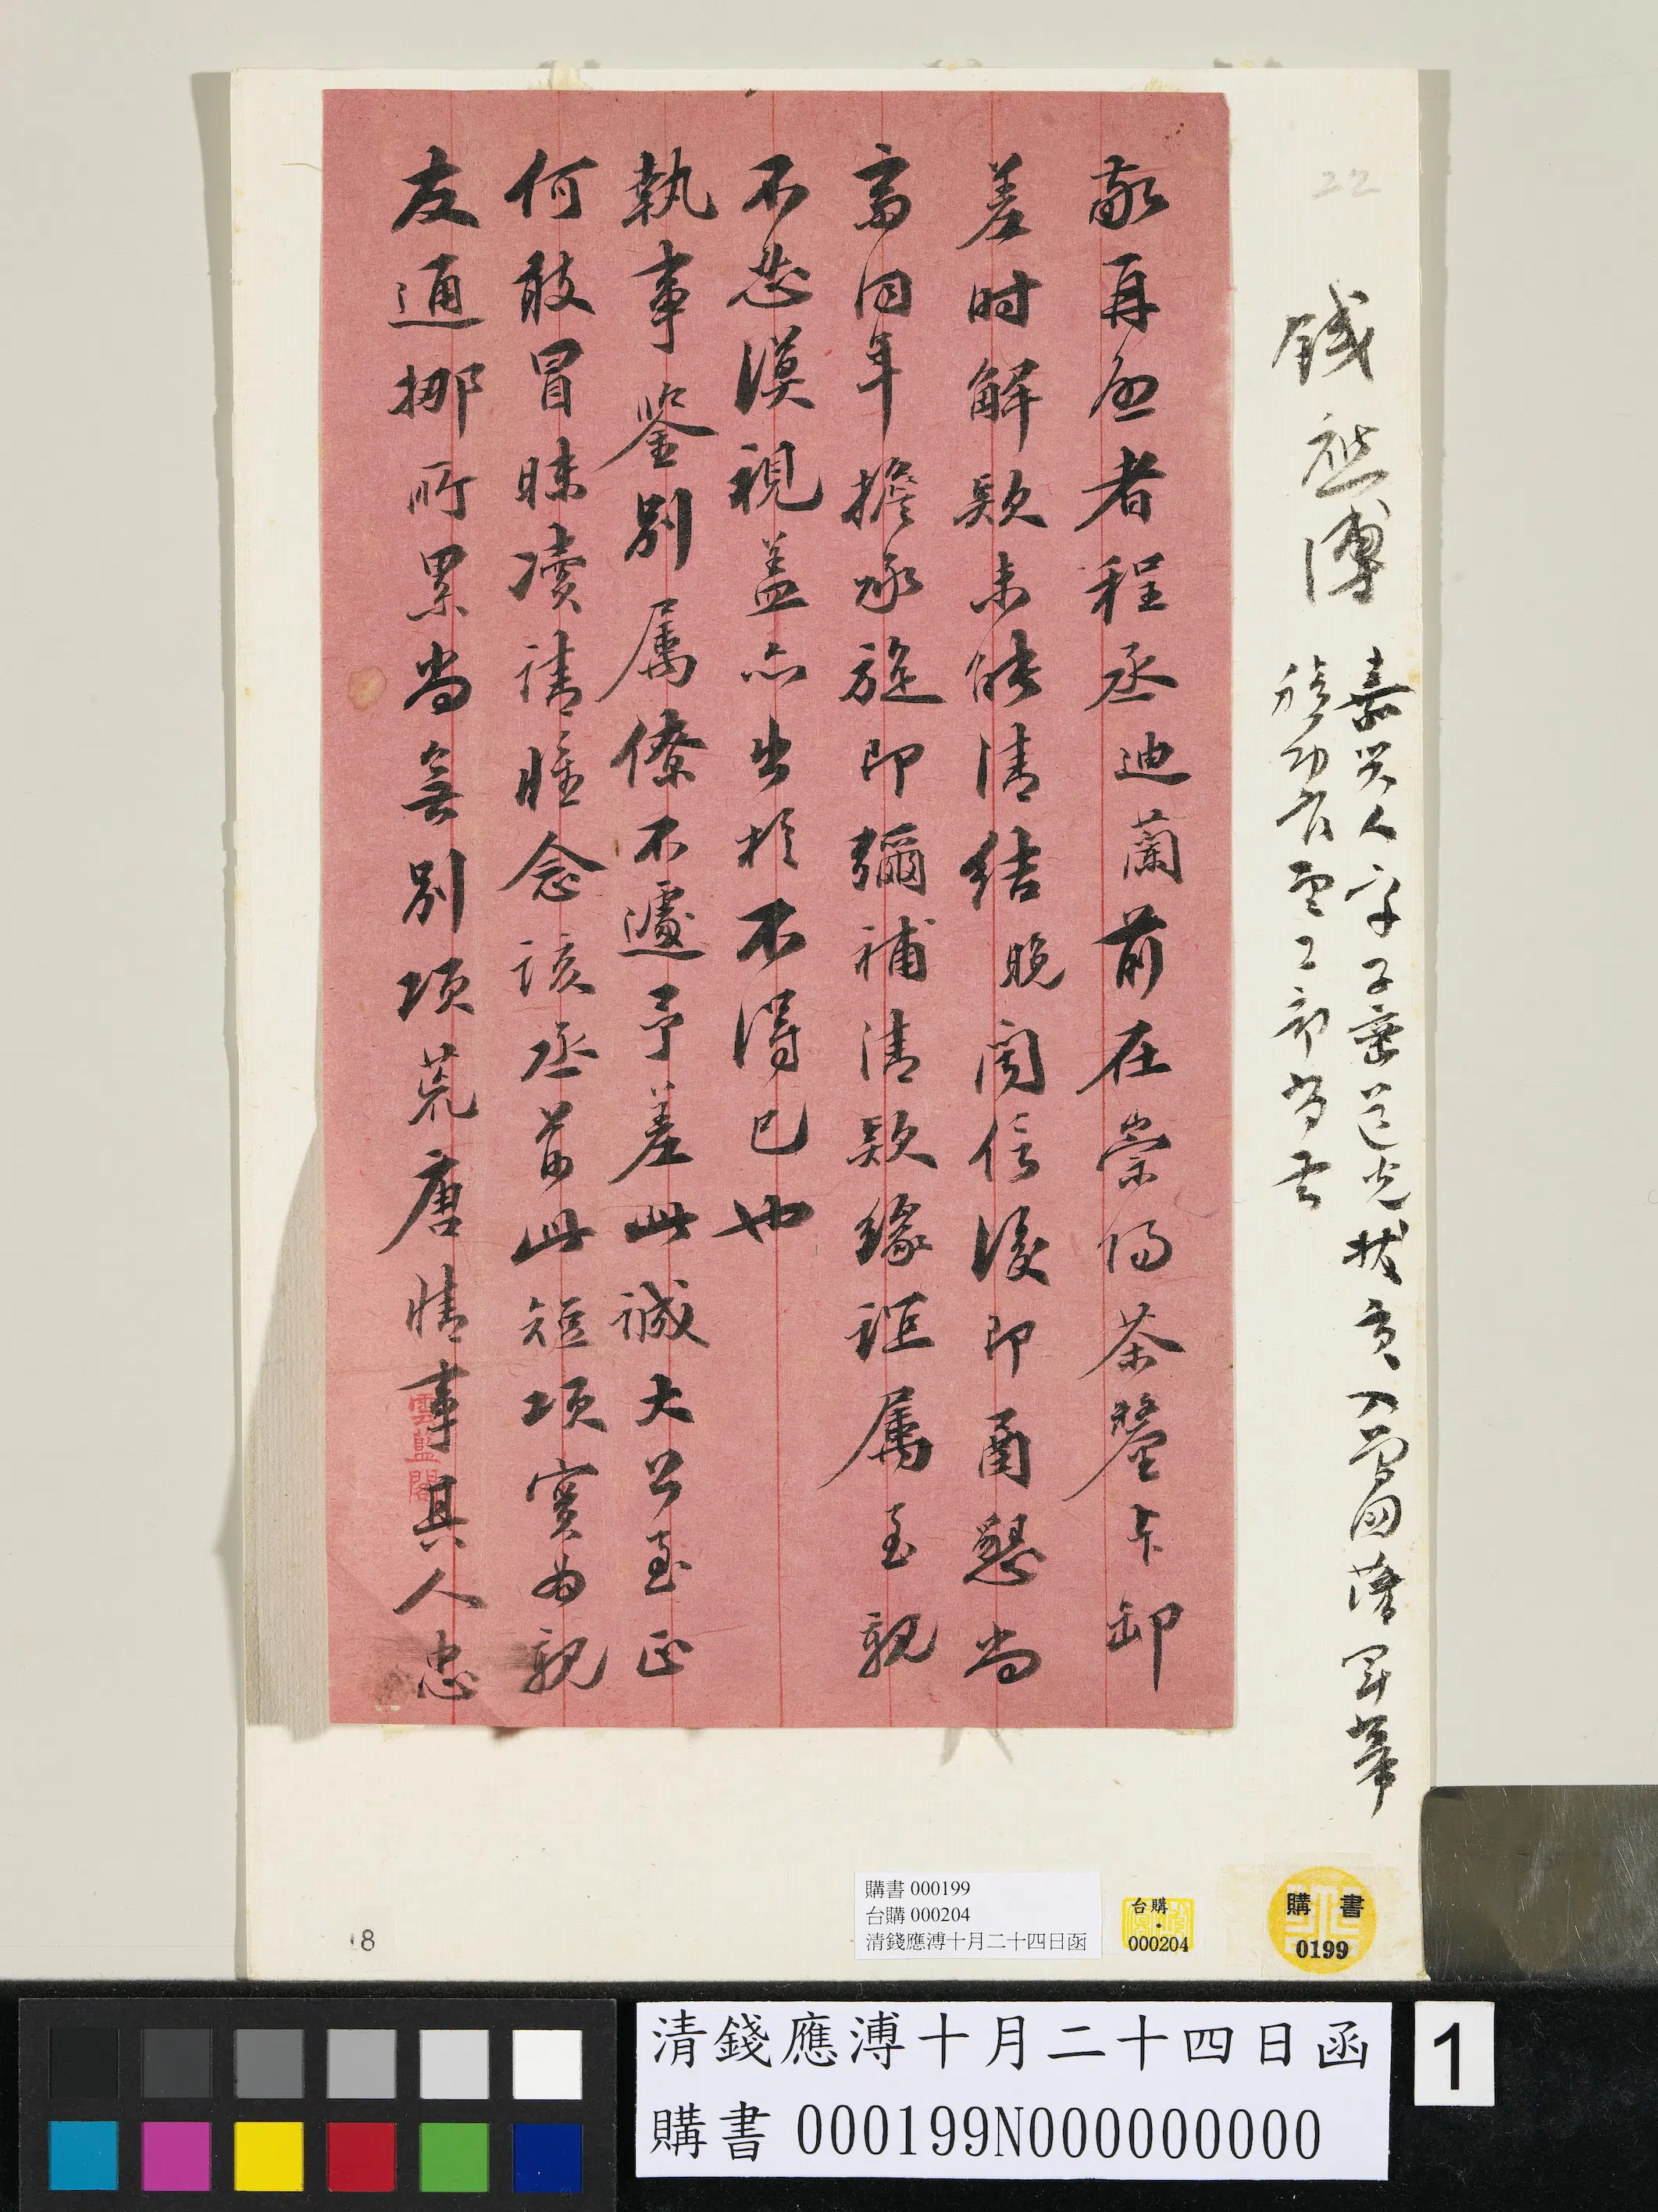 22
錢應溥
嘉興人字子密道光拔貢入曾國藩軍幕
積功官至工部尚書
敬再啟者程丞迪蘭前在崇陽茶釐卡卸
差時解款未能清結晚聞信後即函懇尚
齋同年擔承旋即彌補清款緣誼屬至親
不忍漠視蓋亦出於不得已也
執事鑒別屬僚不遽予差此誠大公至正
何敢冒昧瀆請惟念該丞前此短項實為親
友通挪所累尚無別項荒唐情事其人忠
雲藍閣
18
購書 000199
台購 000204
清錢應溥十月二十四日函
台購
000204
購書
0199
清錢應溥十月二十四日函
購書 000199N000000000
1